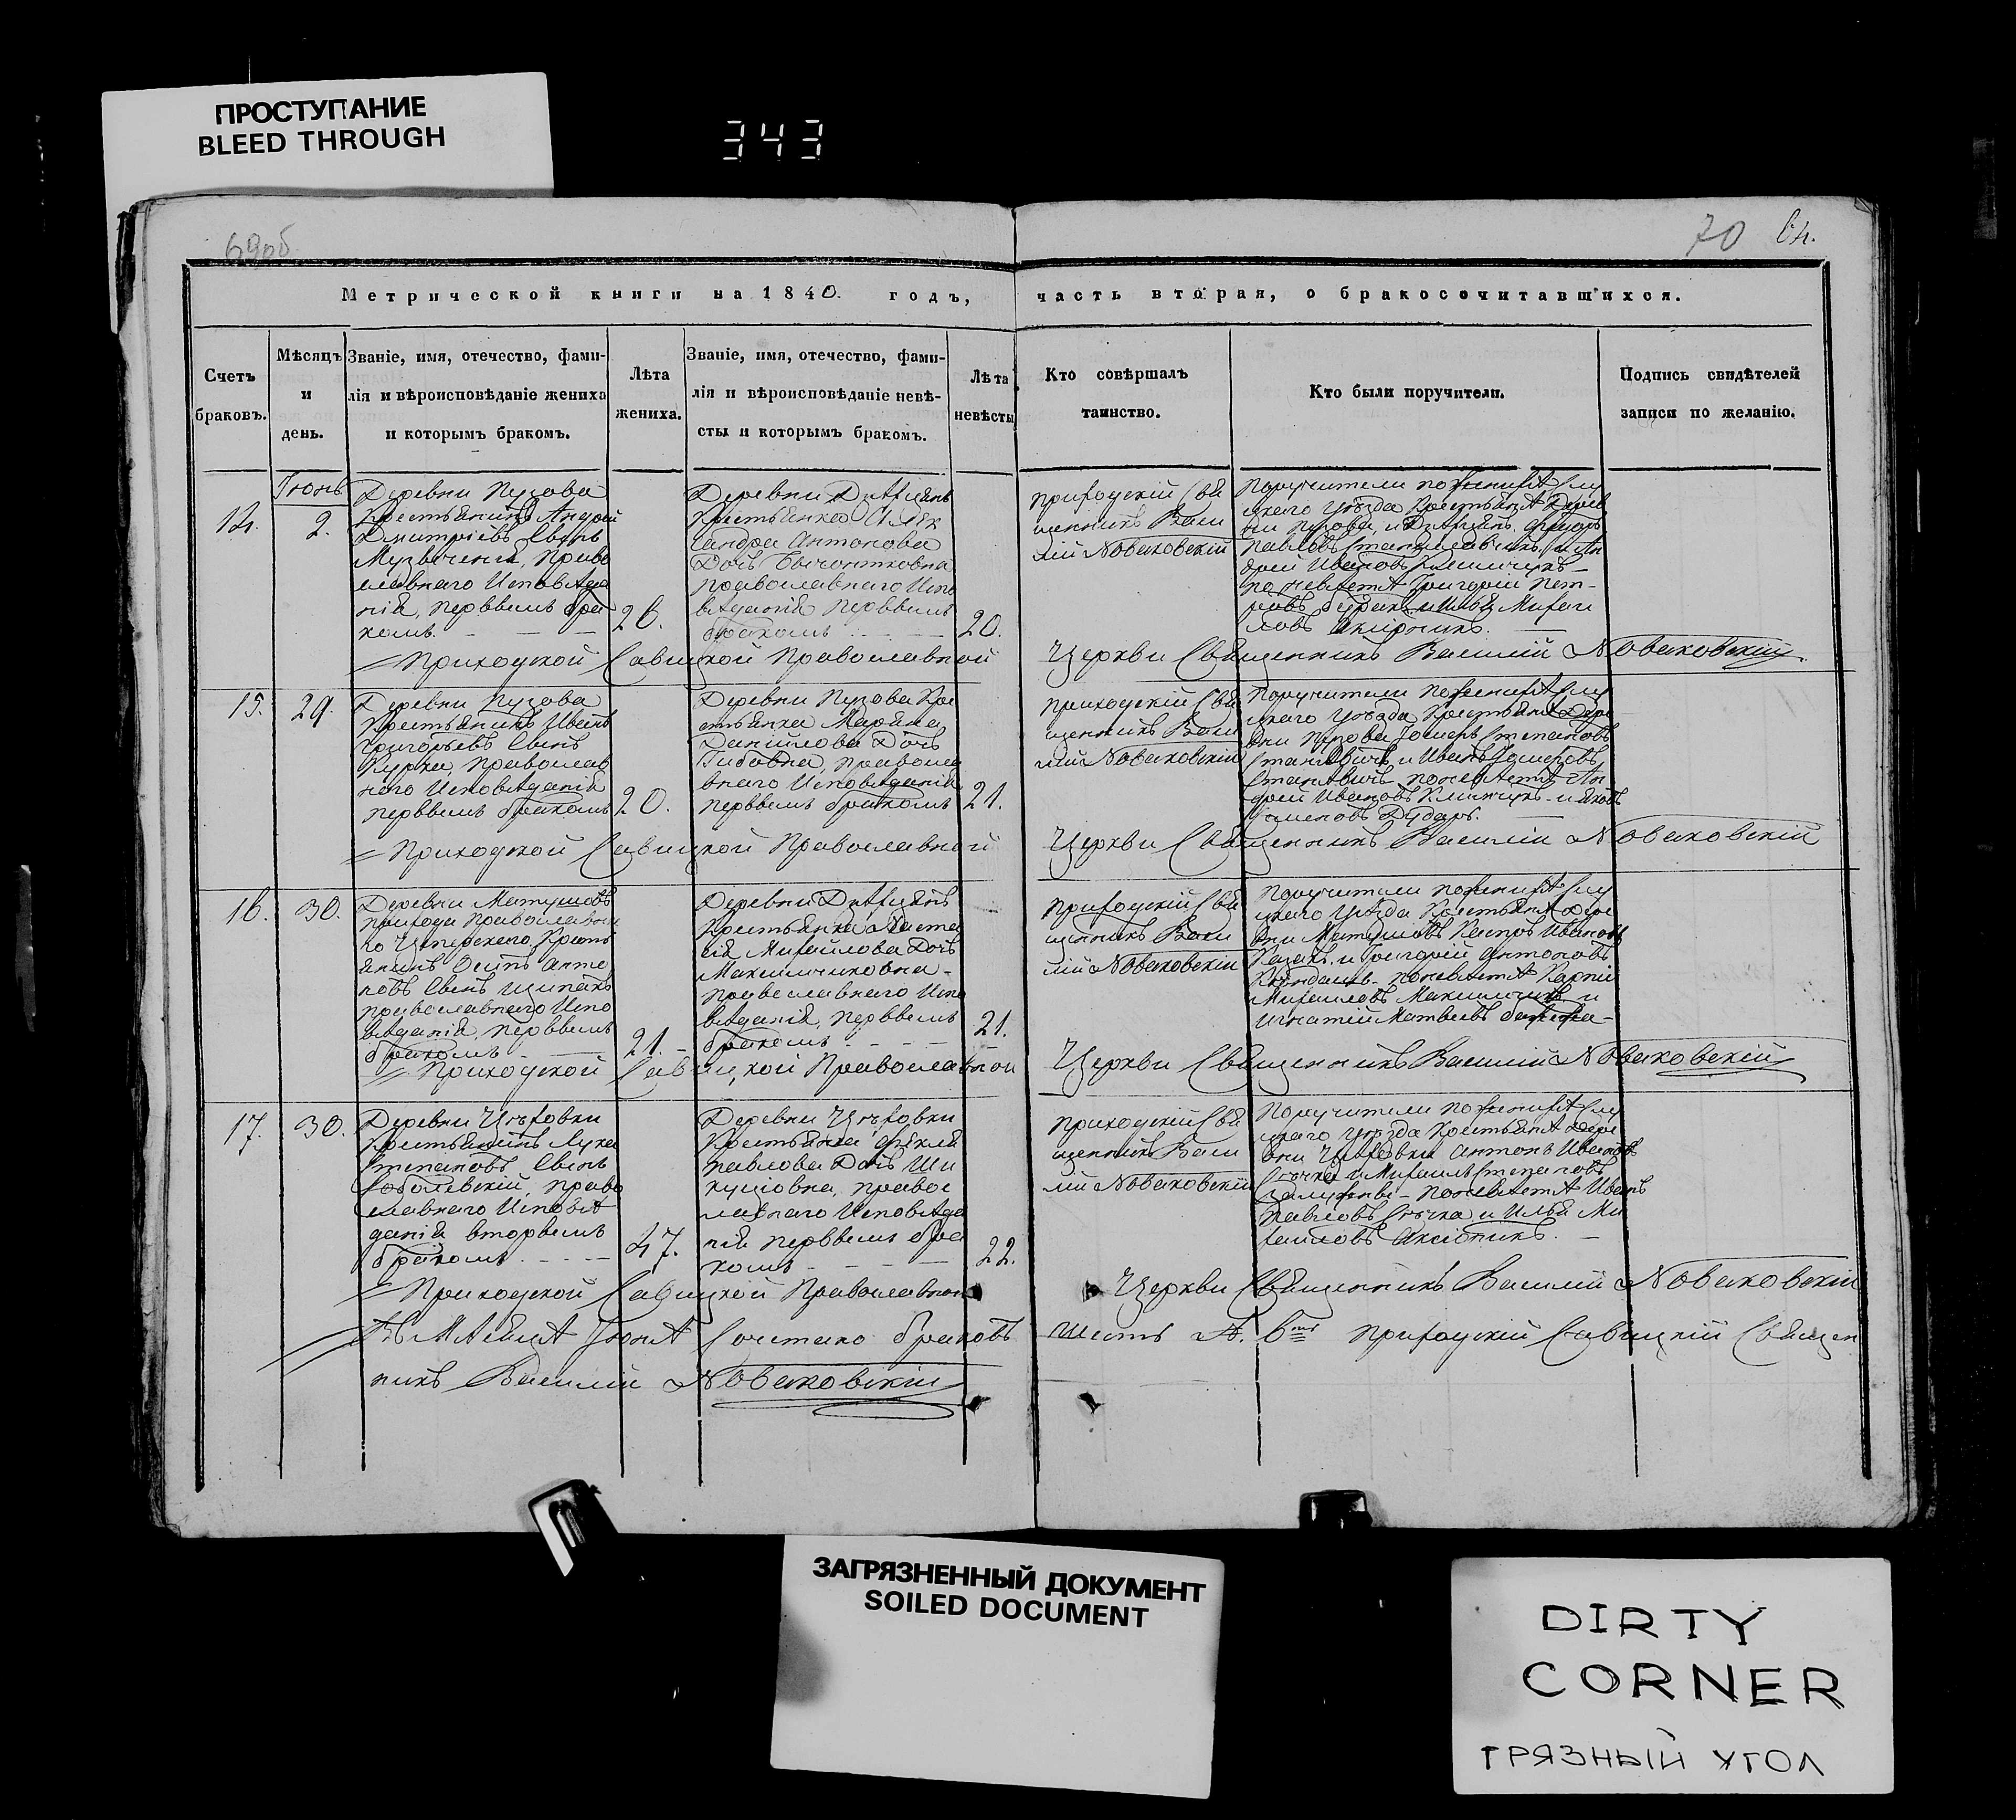 ПРОСТУПАНИЕ
BLEED THROUGH
343
69об
70
Метрической книги на 1840. годъ, часть вторая, о бракосочитавшихся.
Счетъ браковъ.
Мѣсяцъ и день.
Званіе, имя, отечество, фами-
лія и вѣроисповѣданіе жениха
и которымъ бракомъ.
Лѣта
жениха.
Званіе, имя, отечество, фами-
лія и вѣроисповѣданіе невѣ-
сты и которымъ бракомъ.
Лѣта
невѣсты
Кто совѣршалъ
таинство.
Кто были поручители.
Подпись свидѣтелей
записи по желанію.
Іюнь
14.
2.
Деревни Пузова
Крестьянинъ Андрей
Дмитріевъ Сынъ
Музыченя, Право
славнаго Исповѣда
нія, первымъ бра
комъ.
26.
Крестьянка Алек
сандра Антонова
Дочь
православнаго Испо
вѣданія первымъ
бракомъ
20.
приходскій Свя
щенникъ Васи
лій Новаковскій
Поручители по женихѣ Слу
цкаго уѣзда Крестьяне Дерев
Павловъ
дрей Ивановъ Климчукъ
по невѣстѣ Григорій Пет-
ровъ и Илья Михаи
ловъ
Приходской Савицкой Православной Церкви Священникъ Василій Новаковскій
15.
29.
Деревни Пузова
Крестьянинъ Иванъ
Григорьевъ Сынъ
Курка, Православ
наго Исповѣданія
первымъ бракомъ
20.
Деревни Пузова Кре
стьянка Марьяна
Данійлова Дочь
православ
наго Исповѣданія
первымъ бракомъ
21.
приходскій Свя
щенникъ Васи
лій Новаковскій
Поручители по женихѣ Слу
цкаго уѣзда Крестьяне Дере
вни Пузова Степановъ
и Иванъ
по невѣстѣ Ан
дрей Ивановъ Климчукъ и Яковъ
Дударь.
Приходской Савицкой Православной Церкви Священникъ Василій Новаковскій
16.
30.
Деревни Матушовъ
прихода Православна
го Крестъ
янинъ Осипъ Анто
новъ Сынъ Щипакъ
православнаго Испо
вѣданія, первымъ
бракомъ
21.
Крестьянка Наста
сія Михайлова Дочь
Максимчиковна
православнаго Испо
вѣданія, первымъ
бракомъ
21.
приходскій Свя
щенникъ Васи
лій Новаковскій
Поручители по женихѣ Слу
цкаго уѣзда Крестьяне Дере
вни Матушовъ Ивановъ
Казакъ и Григорій Антоновъ
по невѣстѣ Карпій
Михайловъ и
Игнатій Матвѣевъ
Приходской Савицкой Православной Церкви Священникъ Василій Новаковскій
17.
30.
Деревни
Крестьянинъ Лука
Степановъ Сынъ
Соболевскій, право
славнаго Исповѣ
данія вторымъ
бракомъ
47.
Деревни
Крестьянка Фекла
Павлова Дочь
правос
лавнаго Исповѣда
нія первымъ бра
комъ
22.
приходскій Свя
щенникъ Васи
лій Новаковскій
Поручители по женихѣ Слу
цкаго уѣзда Крестьяне Дере
вни Антонъ Ивановъ
и Михаилъ Степановъ
по невѣстѣ Иванъ
Павловъ и Илья Ми
хайловъ
Приходской Савицкой Православной Церкви Священникъ Василій Новаковскій
Въ Мѣсяцѣ Іюнѣ Сочетано браковъ шесть приходскій Савицкій Священ
никъ Василій Новаковскій
ЗАГРЯЗНЕННЫЙ ДОКУМЕНТ
SOILED DOCUMENT
DIRTY
CORNER
ГРЯЗНЫЙ УГОЛ